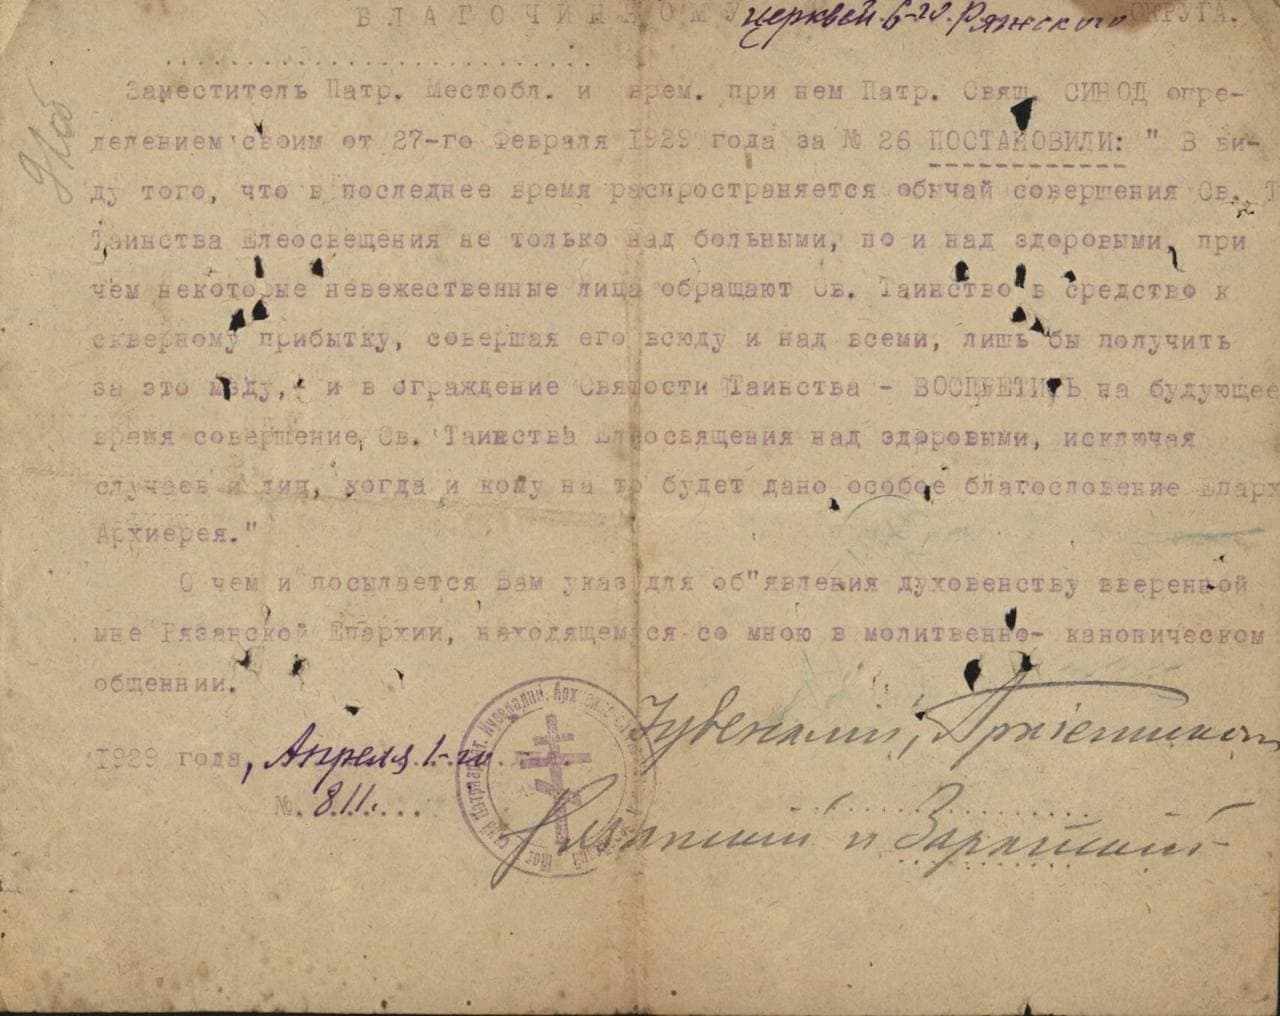 БЛАГОЧИННОМУ церквей 6-го Ряжского ОКРУГА.
Заместитель Патр. Местобл. и врем. при нем Патр. Свящ. СИНОД опре-
делением своим от 27-го Февраля 1929 года за № 26 ПОСТАНОВИЛИ: " В ви-
ду того, что в последнее время распространяется обычай совершения Св. Т
Таинства Елеосвещения не только над больными, но и над здоровыми, при
чем некоторые невежественные лица обращают Св. Таинство в средство к
скверному прибытку, совершая его всюду и над всеми, лишь бы получить
за это мзду, и в ограждение Святости Таинства - ВОСПРЕТИТЬ на будующее
время совершение Св. Таинства Елеосвящения над здоровыми, исключая
случаев и лиц, когда и кому на то будет дано особое благословение Епарх
Архиерея."
О чем и посылается Вам указ для об"явления духовенству вверенной
мне Рязанской Епархии, находящемуся со мною в молитвенно- каноническом
общеннии.
Ювеналий, Архиепископ
1929 года, Апреля 1-го.
№. 811....
Рязанский и Зарайский